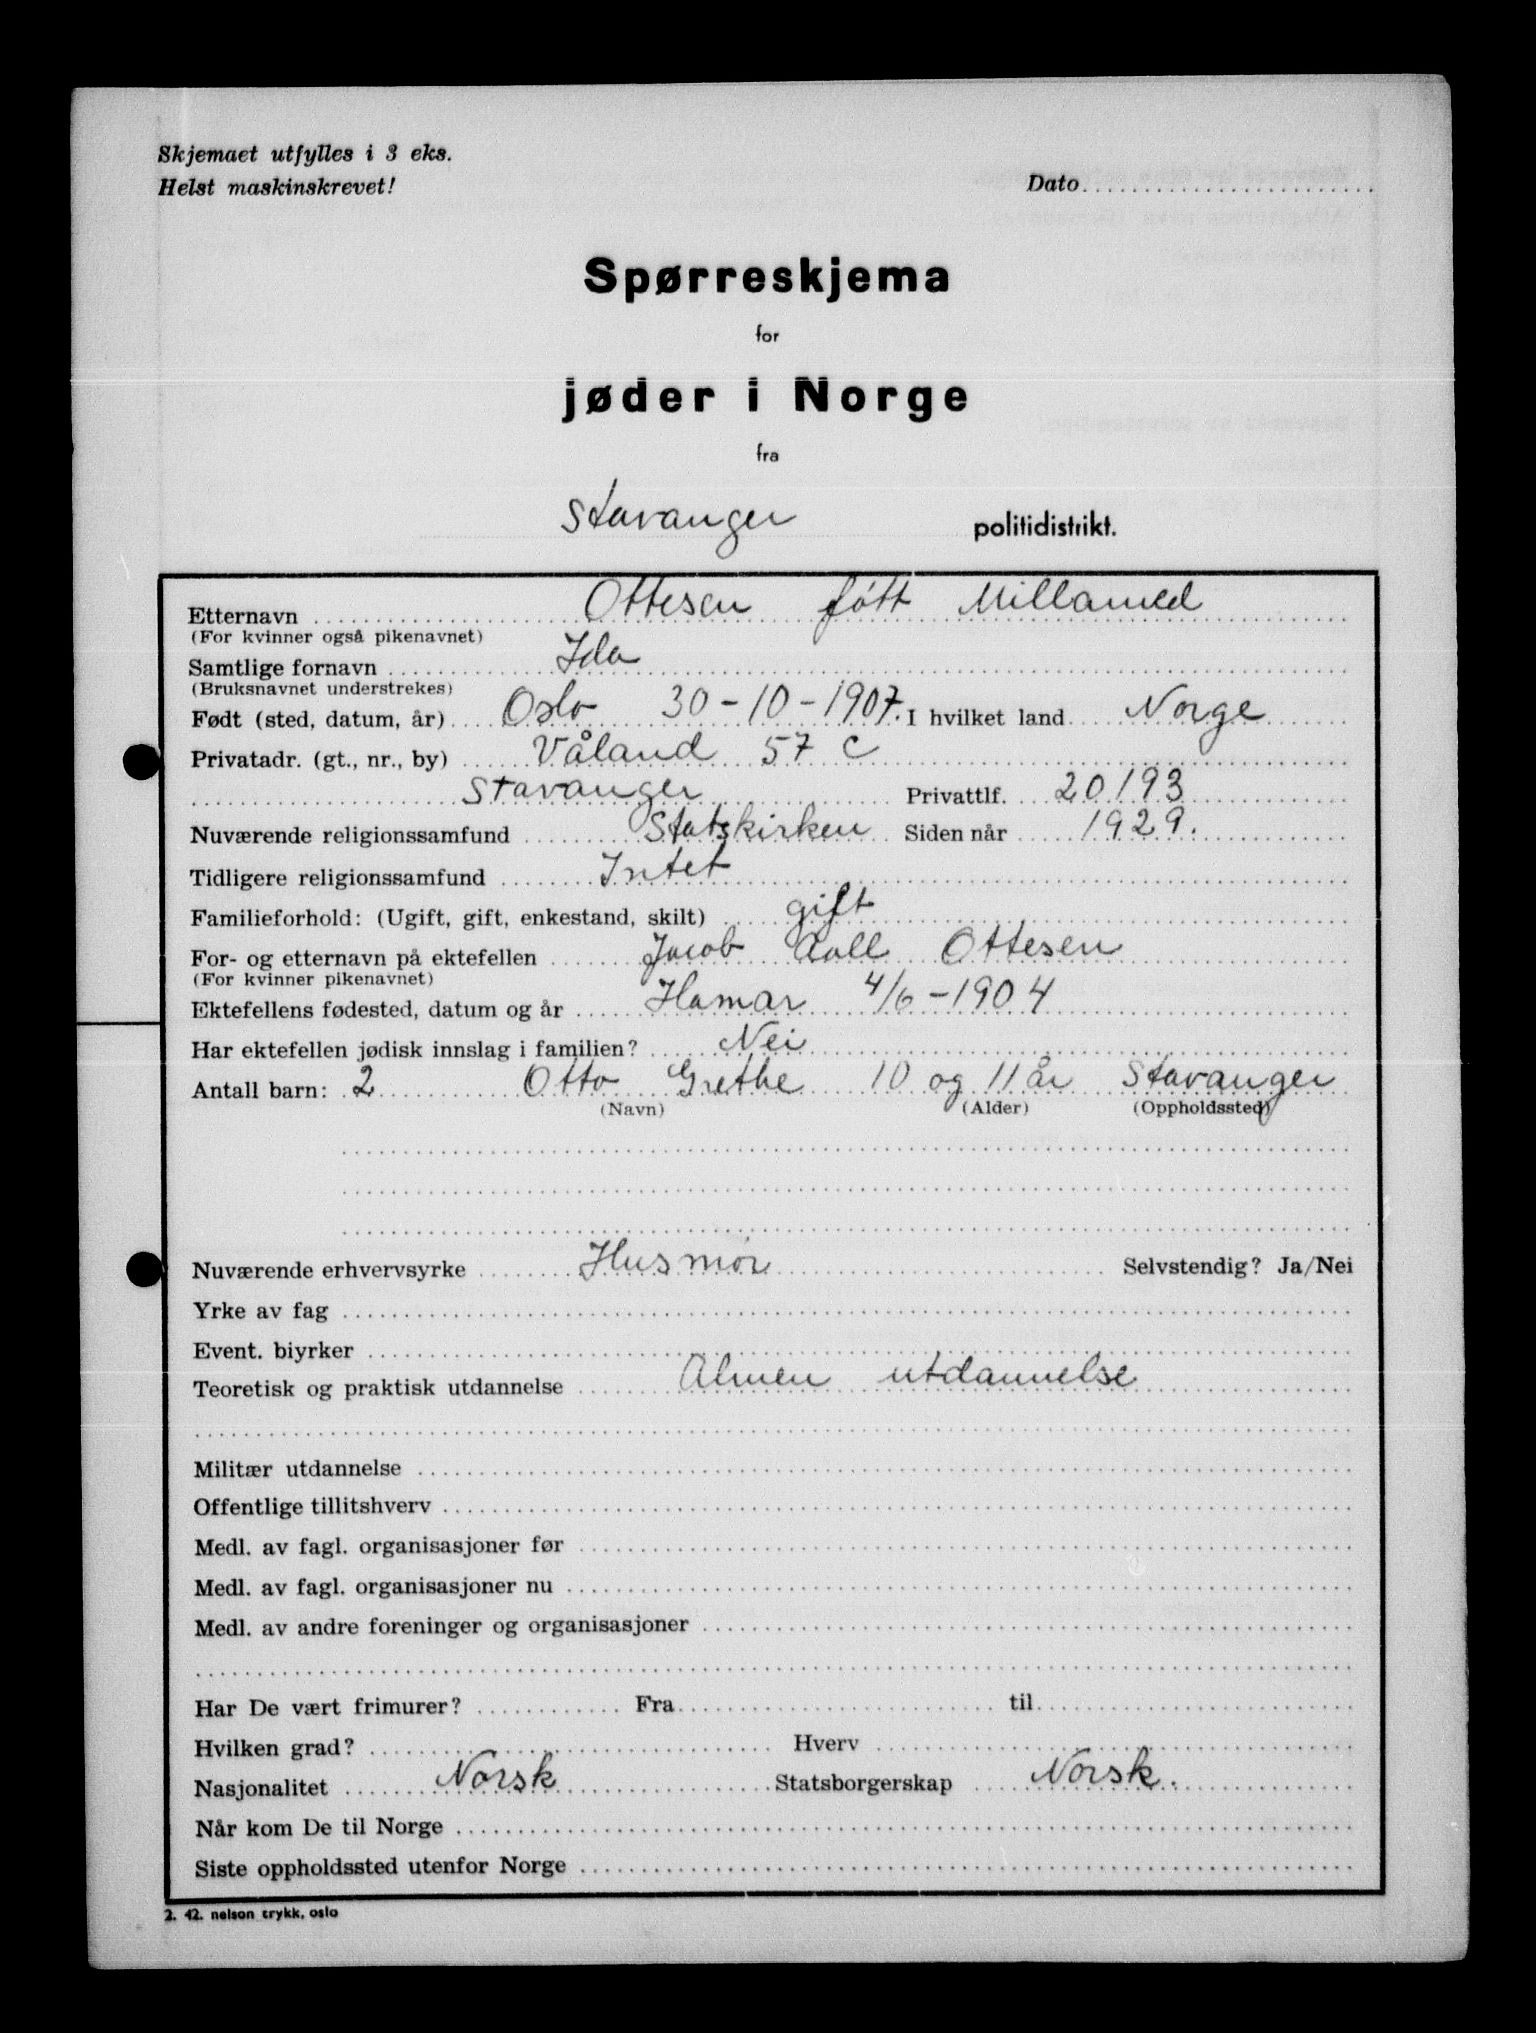 Skjemaet utfylles i 3 eks.
Helst maskinskrevet!
Dato
Spørreskjema
for
jøder i Norge
fra
Stavanger politidistrikt.
Etternavn Ottesen føtt Millamed
(For kvinner også pikenavnet)
Samtlige fornavn Ida
(Bruksnavnet understrekes)
Født (sted, datum, år) Oslo 30-10-1907. I hvilket land Norge
Privatadr. (gt., nr., by) Våland 57 c
Stavanger Privattlf. 20193
Nuværende religionssamfund Statskirken Siden når 1929.
Tidligere religionssamfund Intet
Familieforhold: (Ugift, gift, enkestand, skilt) gift
For- og etternavn på ektefellen Jacob Aall Ottesen
(For kvinner pikenavnet)
Ektefellens fødested, datum og år Hamar 4/6-1904
Har ektefellen jødisk innslag i familien? Nei
Antall barn: 2 Otto Grethe 10 og 11 år Stavanger
(Navn) (Alder) (Oppholdssted)
Nuværende erhvervsyrke Husmor Selvstendig? Ja/Nei
Yrke av fag
Event. biyrker
Teoretisk og praktisk utdannelse Almen utdannelse
Militær utdannelse
Offentlige tillitshverv
Medl. av fagl. organisasjoner før
Medl. av fagl. organisasjoner nu
Medl. av andre foreninger og organisasjoner
Har De vært frimurer? Fra til
Hvilken grad? Hverv
Nasjonalitet Norsk Statsborgerskap Norsk.
Når kom De til Norge
Siste oppholdssted utenfor Norge
2. 42. nelson trykk, oslo